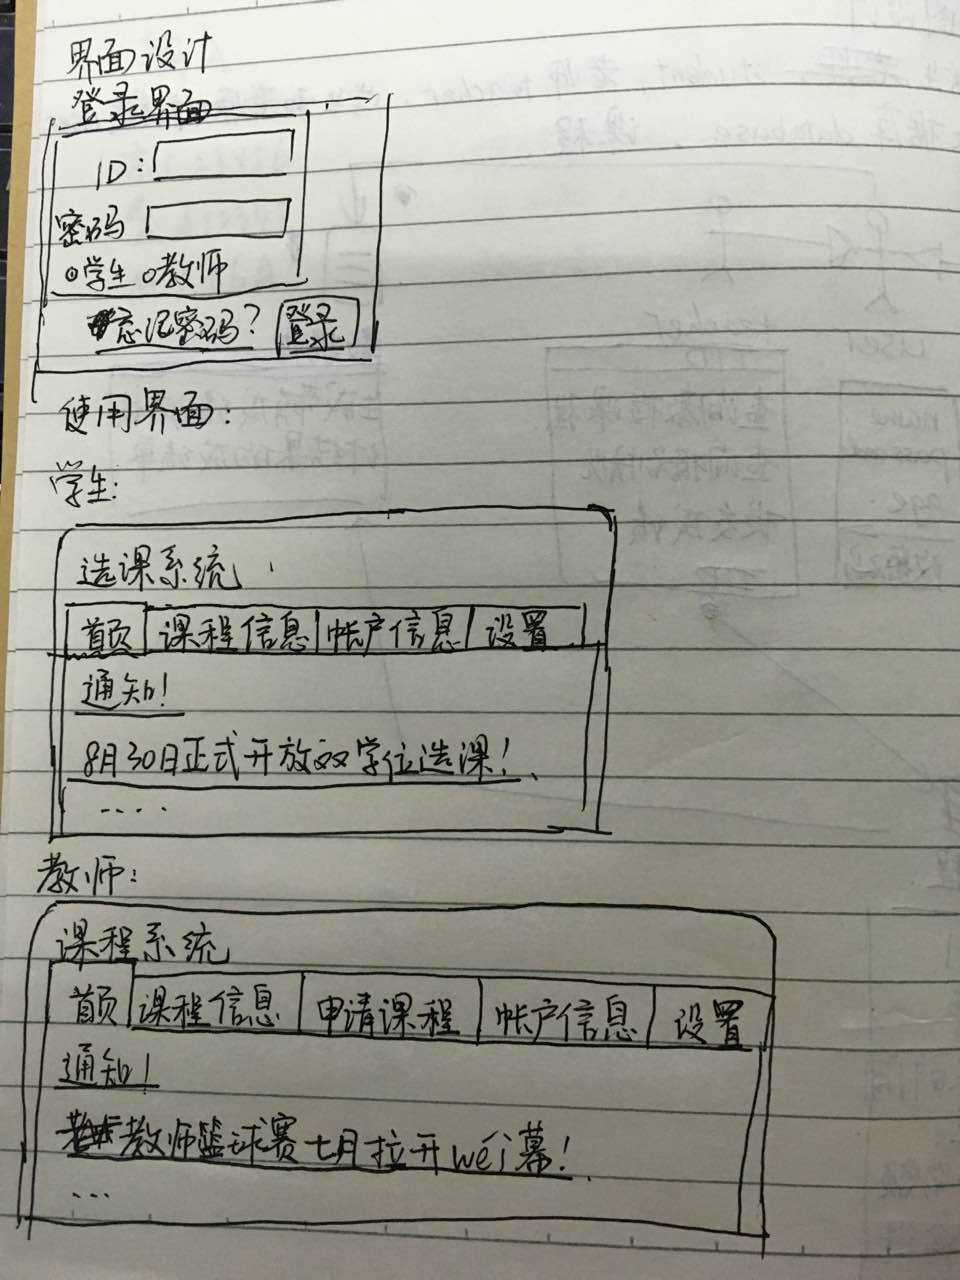 界面设计
登录界面
ID:
密码
学生 教师
忘记密码? 登录
使用界面:
学生:
选课系统
首页 课程信息 帐户信息 设置
通知!
8月30日正式开放双学位选课!
....
教师:
课程系统
首页 课程信息 申请课程 帐户信息 设置
通知!
教师篮球赛七月拉开wei幕!
...